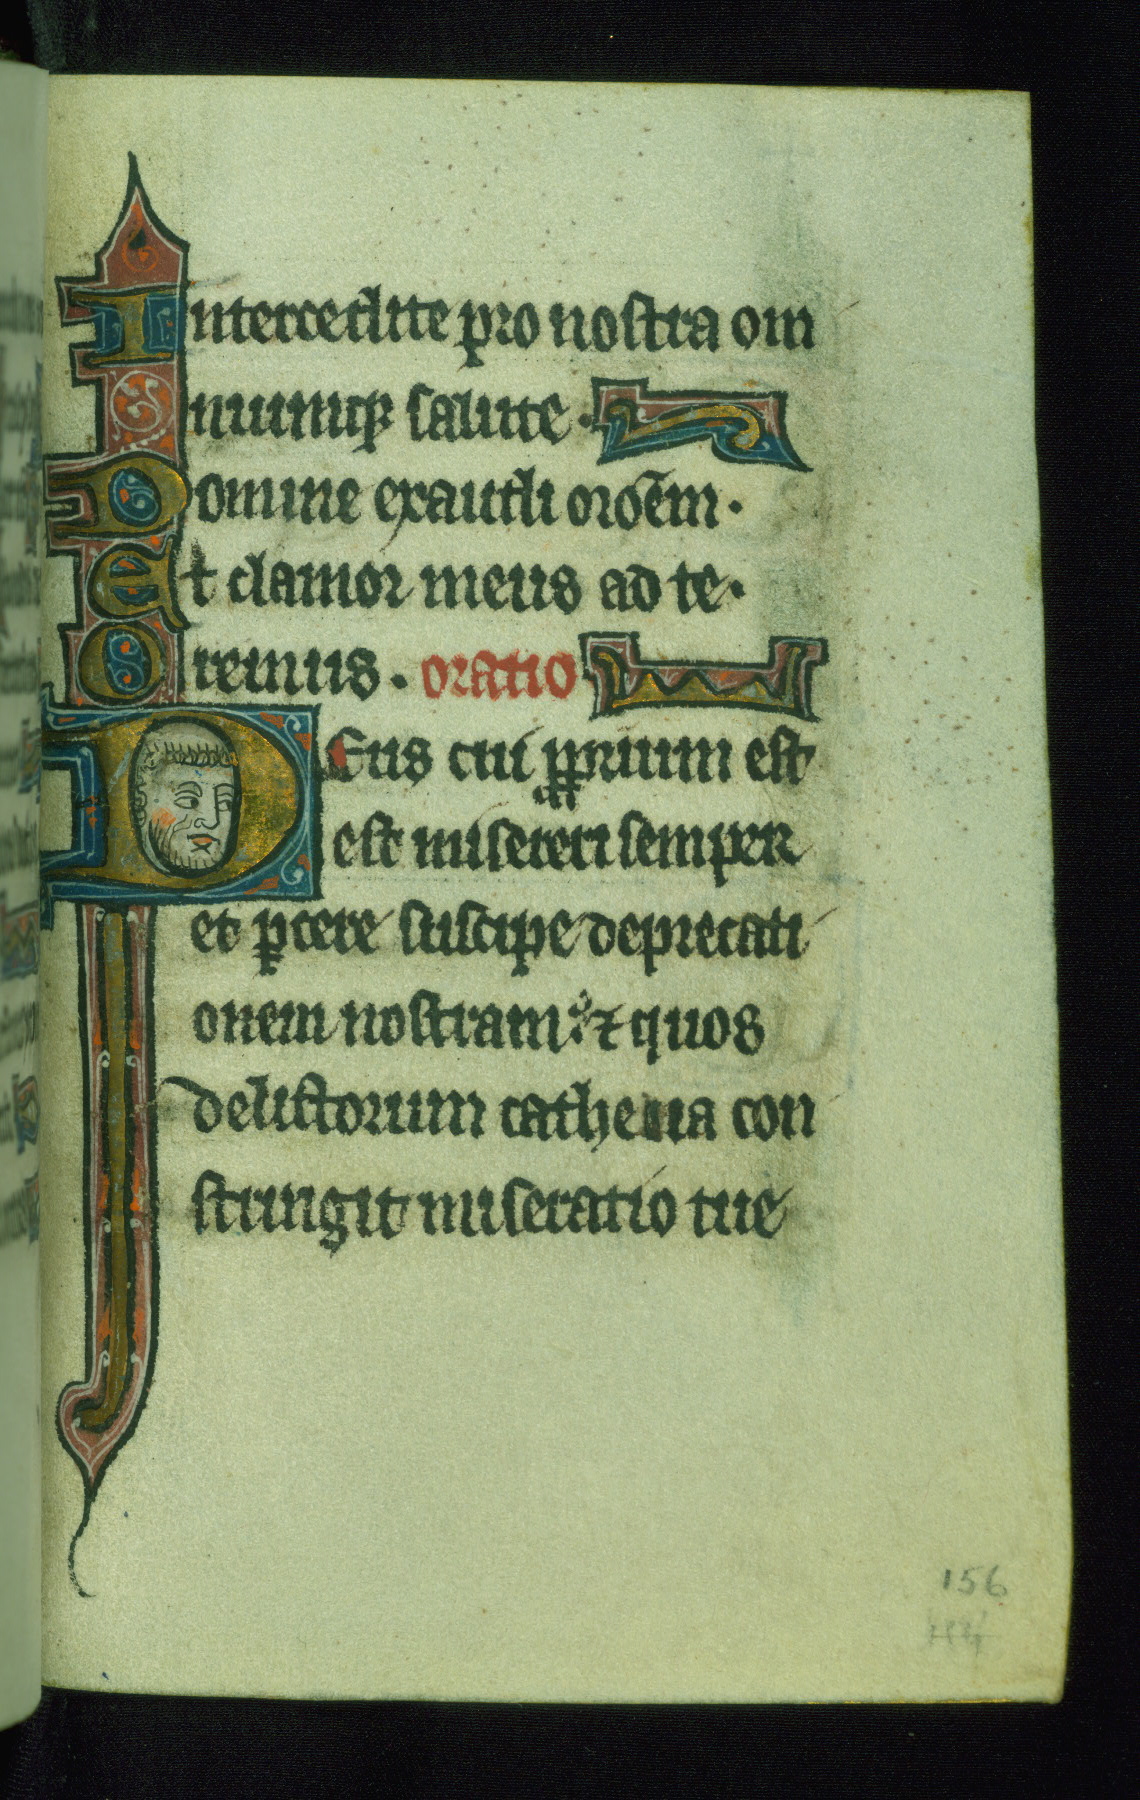 Intercedite pro nostra om
niumqꝫ salute ·
Domine exaudi oröēm ·
Et clamor meus ad te ·
Oremus · oratio
DEus cui ꝓprium est
est misereri semper
et ꝑcere suscipe deprecati
onem nostram : ⁊ quos
delictorum cathena con
stringit miseratio tue
156